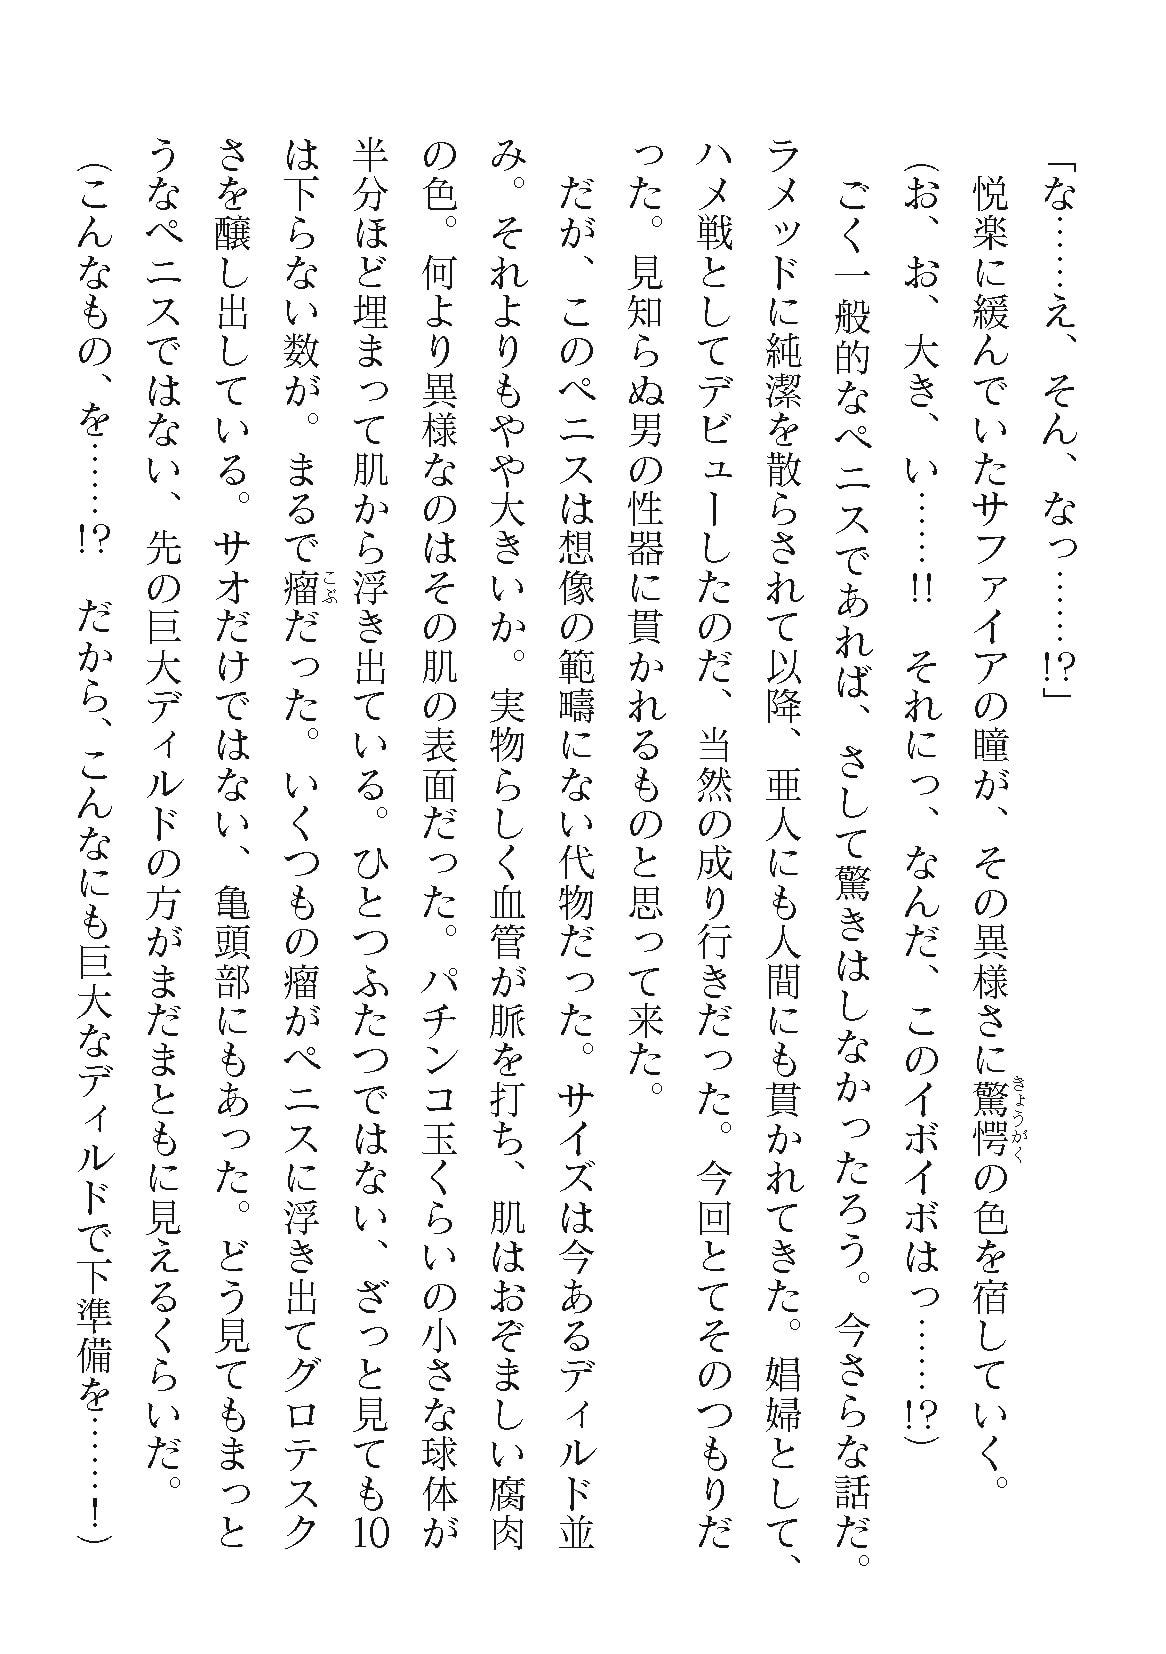 「な……え、そん、なっ……!?」
悦楽に緩んでいたサファイアの瞳が、その異様さに驚愕の色を宿していく。
(お、お、大き、い……!! それにっ、なんだ、このイボイボはっ……!?)
ごく一般的なペニスであれば、さして驚きはしなかったろう。今さらな話だ。
ラメッドに純潔を散らされて以降、亜人にも人間にも貫かれてきた。娼婦として、
ハメ戦としてデビューしたのだ、当然の成り行きだった。今回とてそのつもりだ
った。見知らぬ男の性器に貫かれるものと思って来た。
だが、このペニスは想像の範疇にない代物だった。サイズは今あるディルド並
み。それよりもやや大きいか。実物らしく血管が脈を打ち、肌はおぞましい腐肉
の色。何より異様なのはその肌の表面だった。パチンコ玉くらいの小さな球体が
半分ほど埋まって肌から浮き出ている。ひとつふたつではない、ざっと見ても10
は下らない数が。まるで瘤だった。いくつもの瘤がペニスに浮き出てグロテスク
さを醸し出している。サオだけではない、亀頭部にもあった。どう見てもまっと
うなペニスではない、先の巨大ディルドの方がまだまともに見えるくらいだ。
(こんなもの、を……!? だから、こんなにも巨大なディルドで下準備を……!)